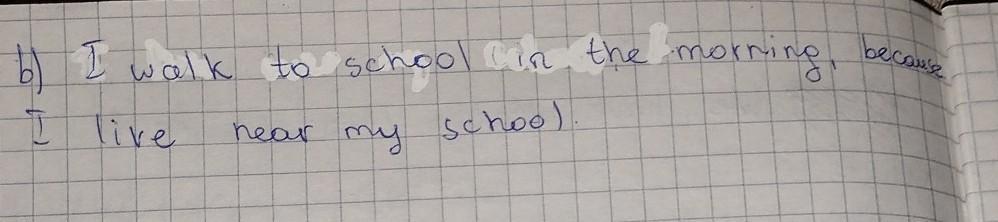 b) I walk to school in the morning, because
I live near my school.